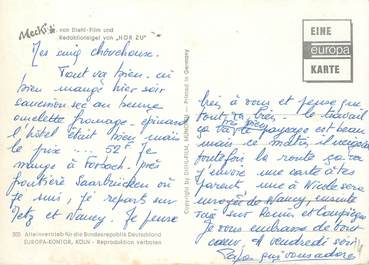 Mecki
von Diehl-Film und
Redaktionsigel von „HÖR ZU"
EINE
europa
KARTE
Mes cinq chouchoux.
Tout va bien. ai
bien mangé hier soir
saucisson sec au beurre
omelette fromage. épinards
l'hôtel était bien mais
le prix ... 52F. Je
mange à Forbach. près
frontière Saarbrücken où
je suis, je reparts sur
Metz et Nancy. Je pense
bien à vous et pense que
tout va bien. le travail
ça va. le paysage est beau
mais ce matin, il
toutefois la route ça va
j'envoie une carte à tes
parent une à Nicole sera
envoyée de Nancy, ensuite
sur Reims et Compiègne
Je vous embrasse de tout
cœur. A vendredi soir
Papa qui vous adore
Copyright by DIEHL-FILM, MÜNCHEN — Printed in Germany
Alleinvertrieb für die Bundesrepublik Deutschland
EUROPA-KONTOR, KÖLN - Reproduktion verboten